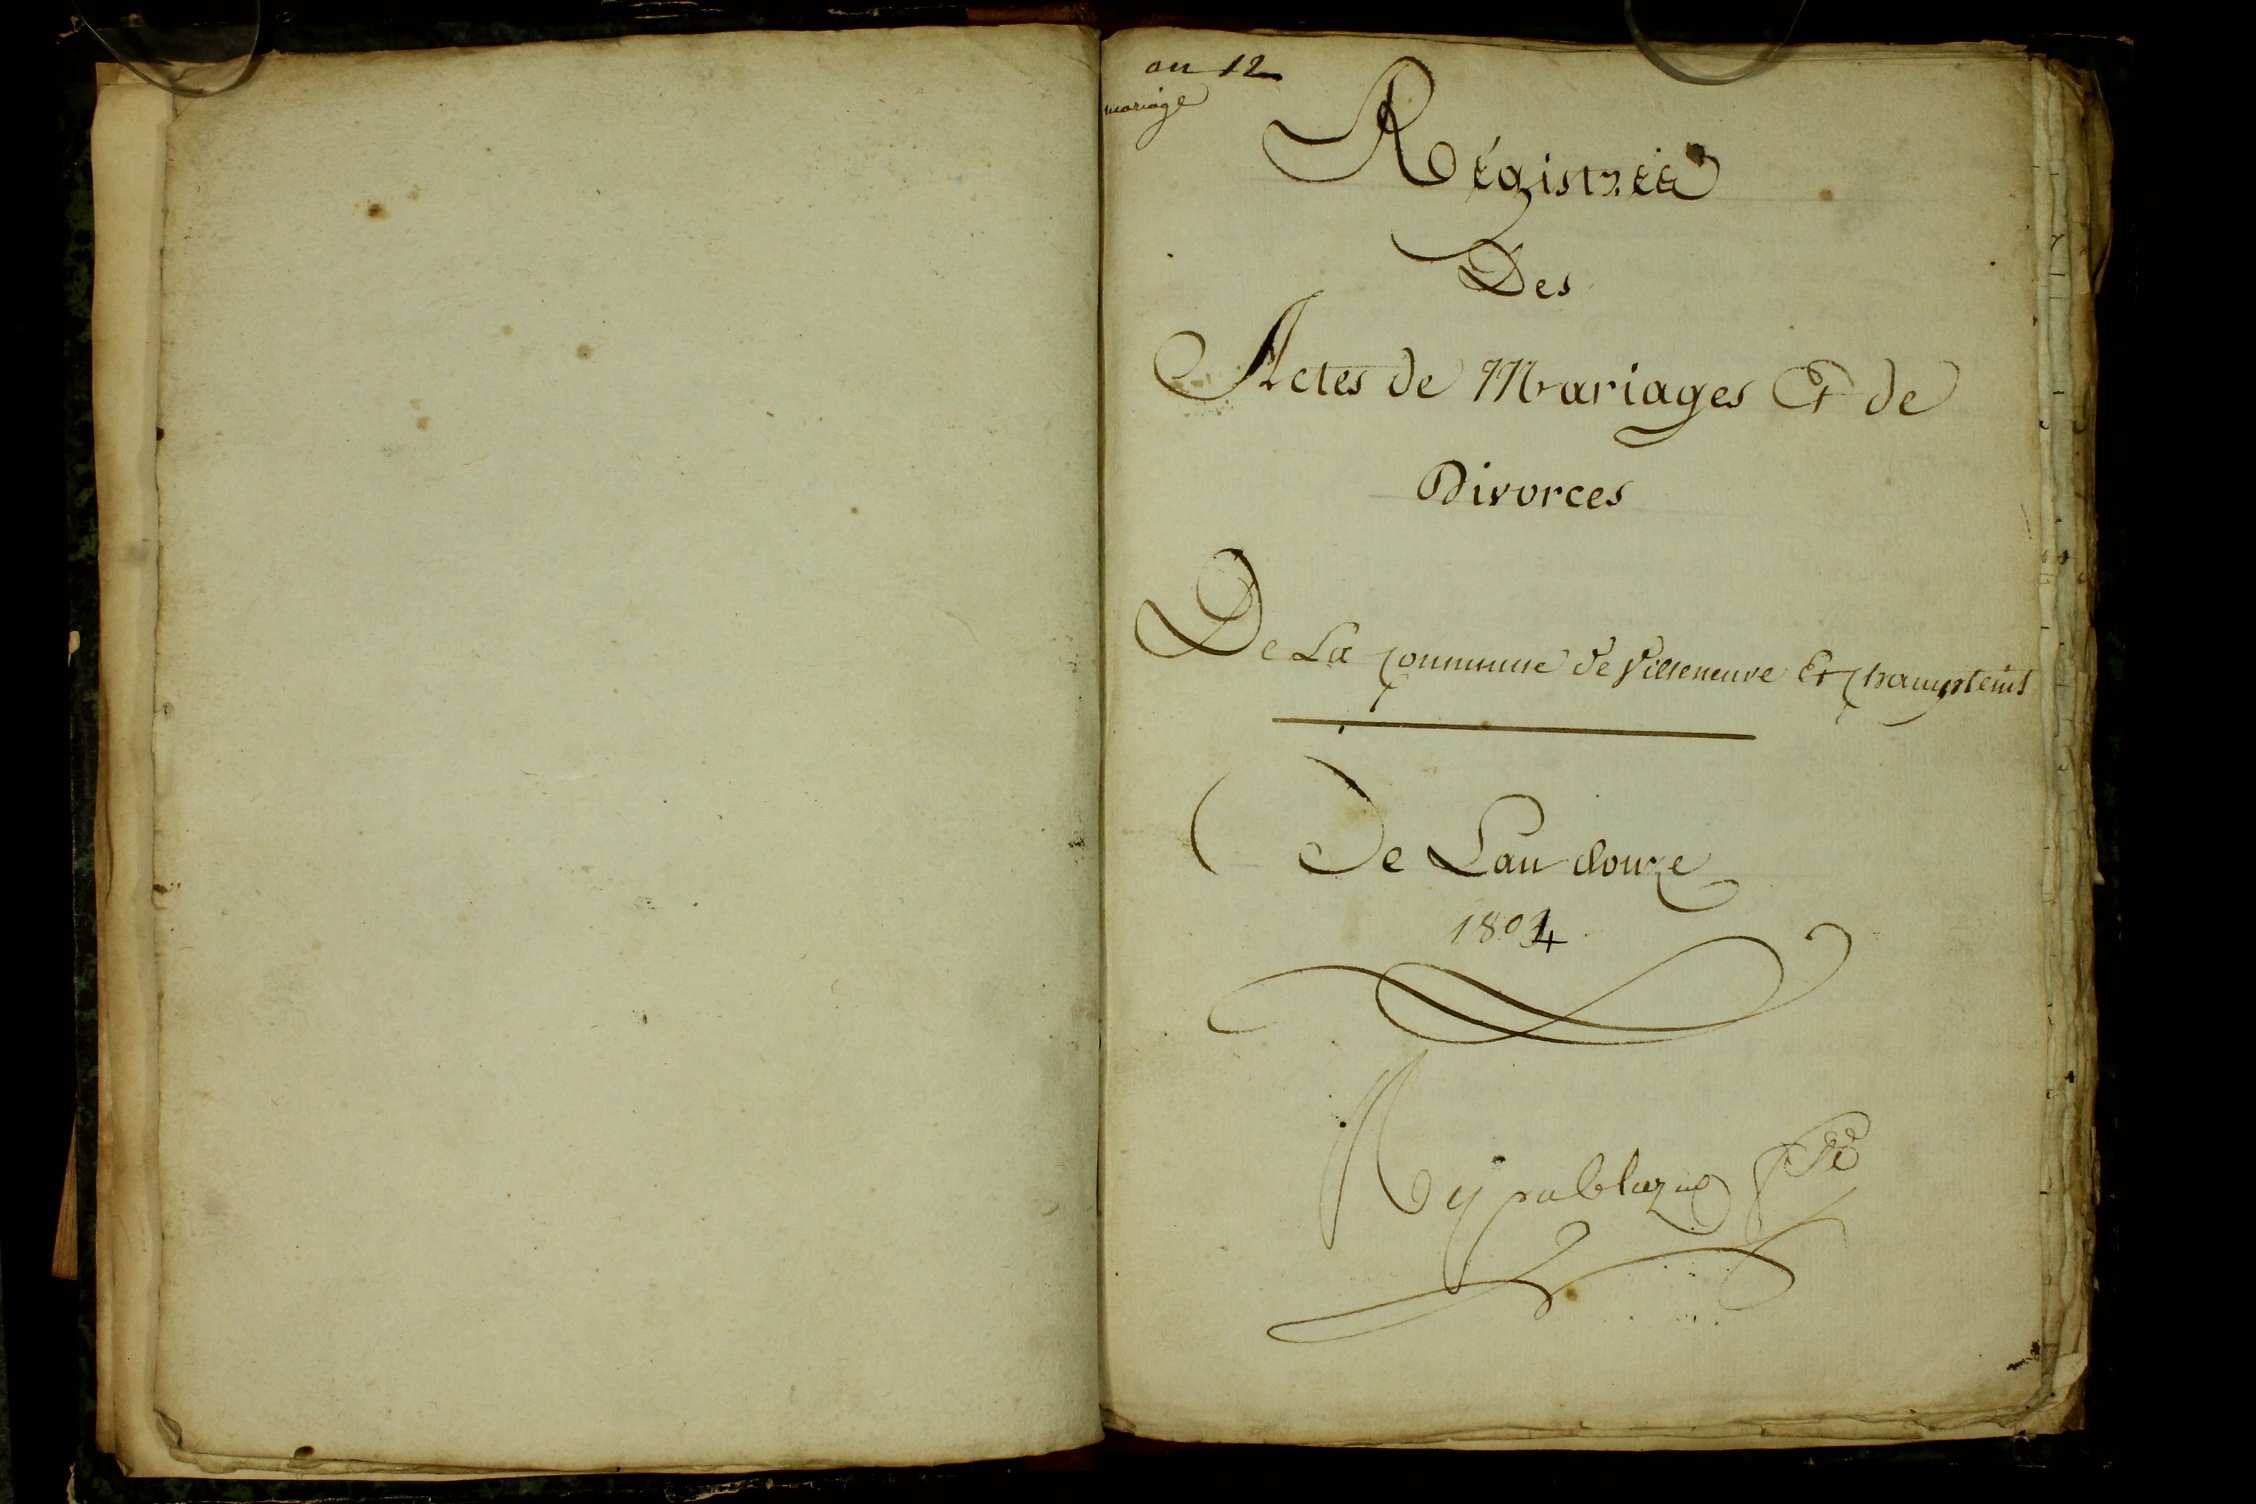 an 12
mariage
Régistree
Des
Actes de Mariages Et de
Divorces
De La Commune de Villeneuve Et Champteuil
De Lan douze
1804